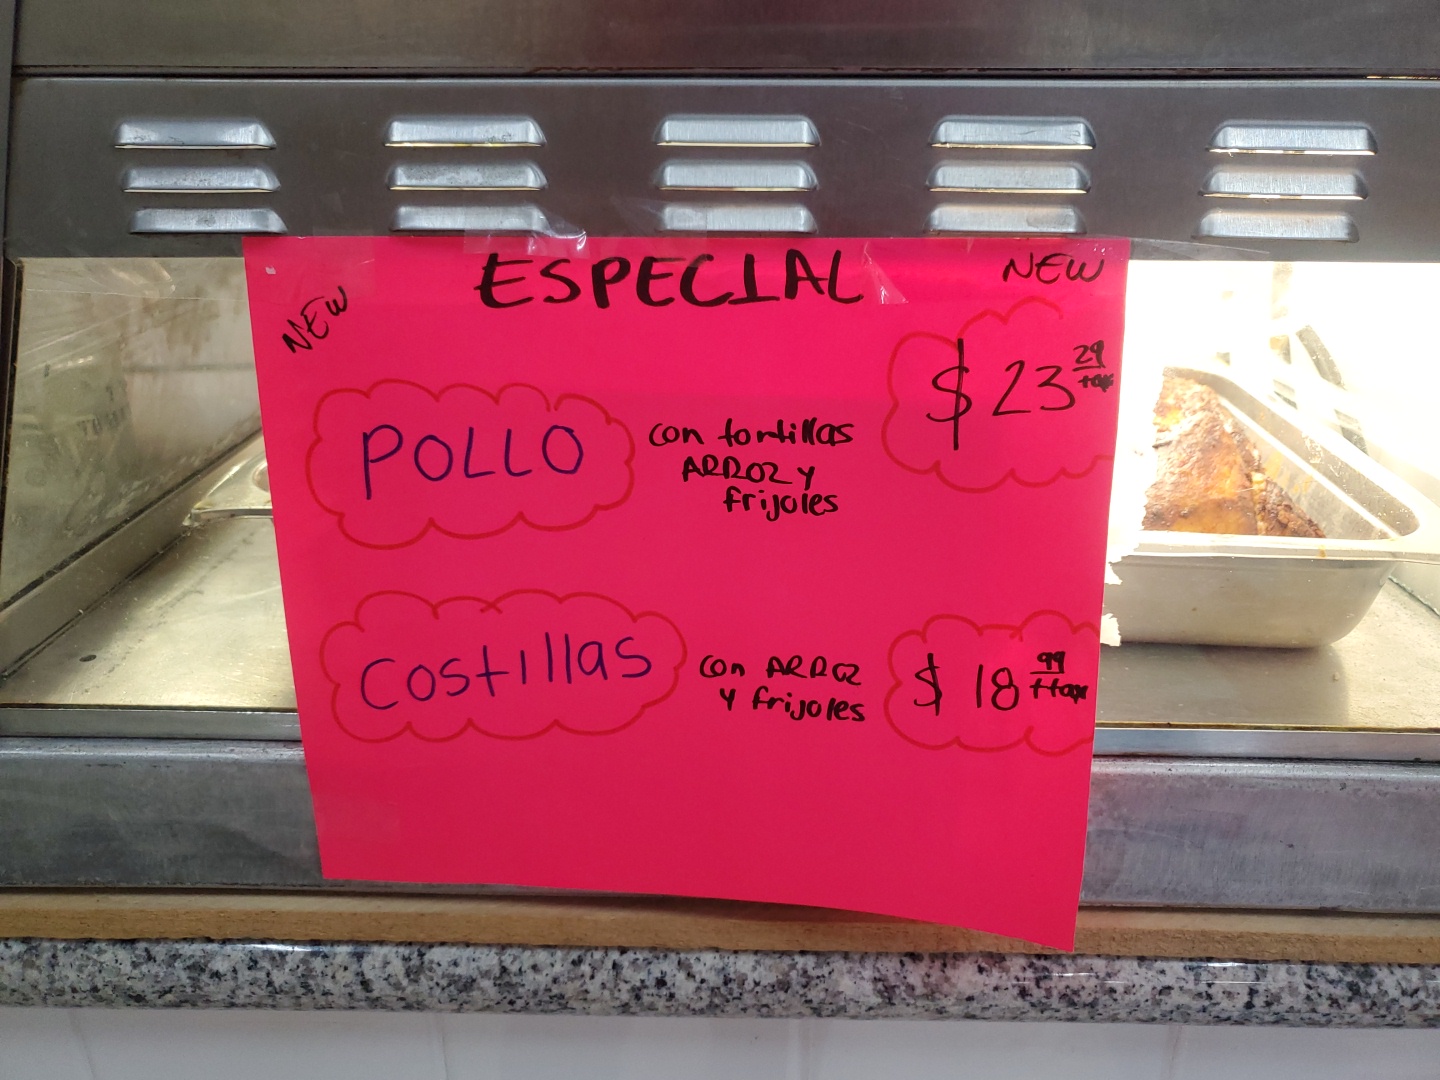 NEW
ESPECIAL
NEW
POLLO
con tortillas
ARROZ y
frijoles
$ 23 29
+tax
Costillas
con ARROZ
y frijoles
$ 18 99
+tax